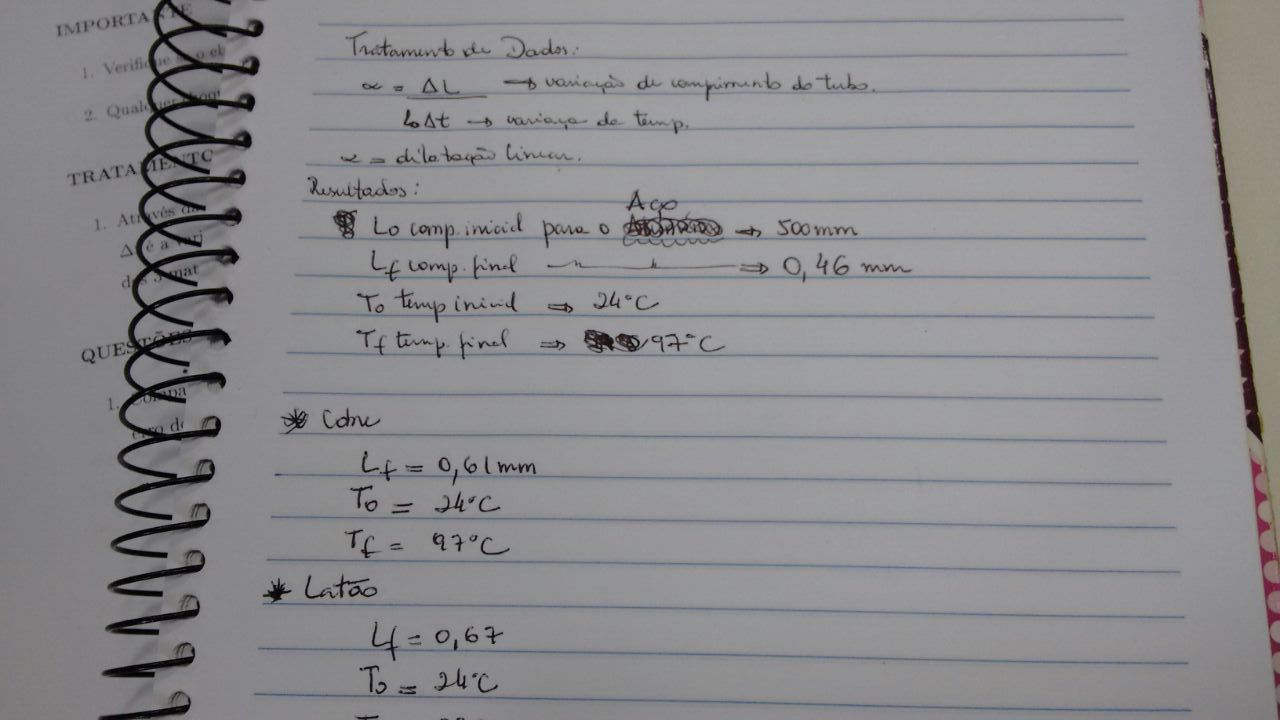 IMPORTANTE
1. Verifique o
2. Qualquer
TRATAMENTO
1. Através
Δ é a vari
dos 3 mat
QUESTÕES
1. Compa
Tratamento de Dados:
α = ΔL → variação de comprimento do tubo.
L₀Δt → variaça de temp.
α = dilatação linear.
Resultados:
Aço
Lo comp. inicial para o → 500mm
Lf comp. final ⇒ 0,46 mm
To temp inicial ⇒ 24°C
Tf temp. final ⇒ 97°C
* Cobre
Lf = 0,61mm
To = 24°C
Tf = 97°C
* Latão
Lf = 0,67
To = 24°C